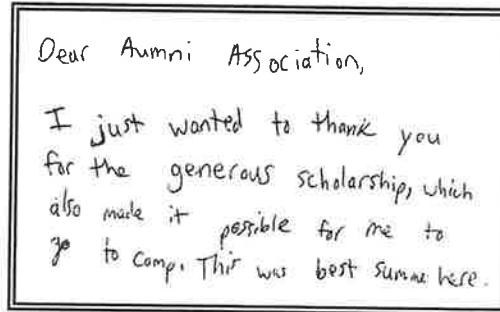 Dear Aumni Association,
I just wanted to thank you
for the generous scholarship, which
also made it possible for me to
go to camp. This was best summe here.